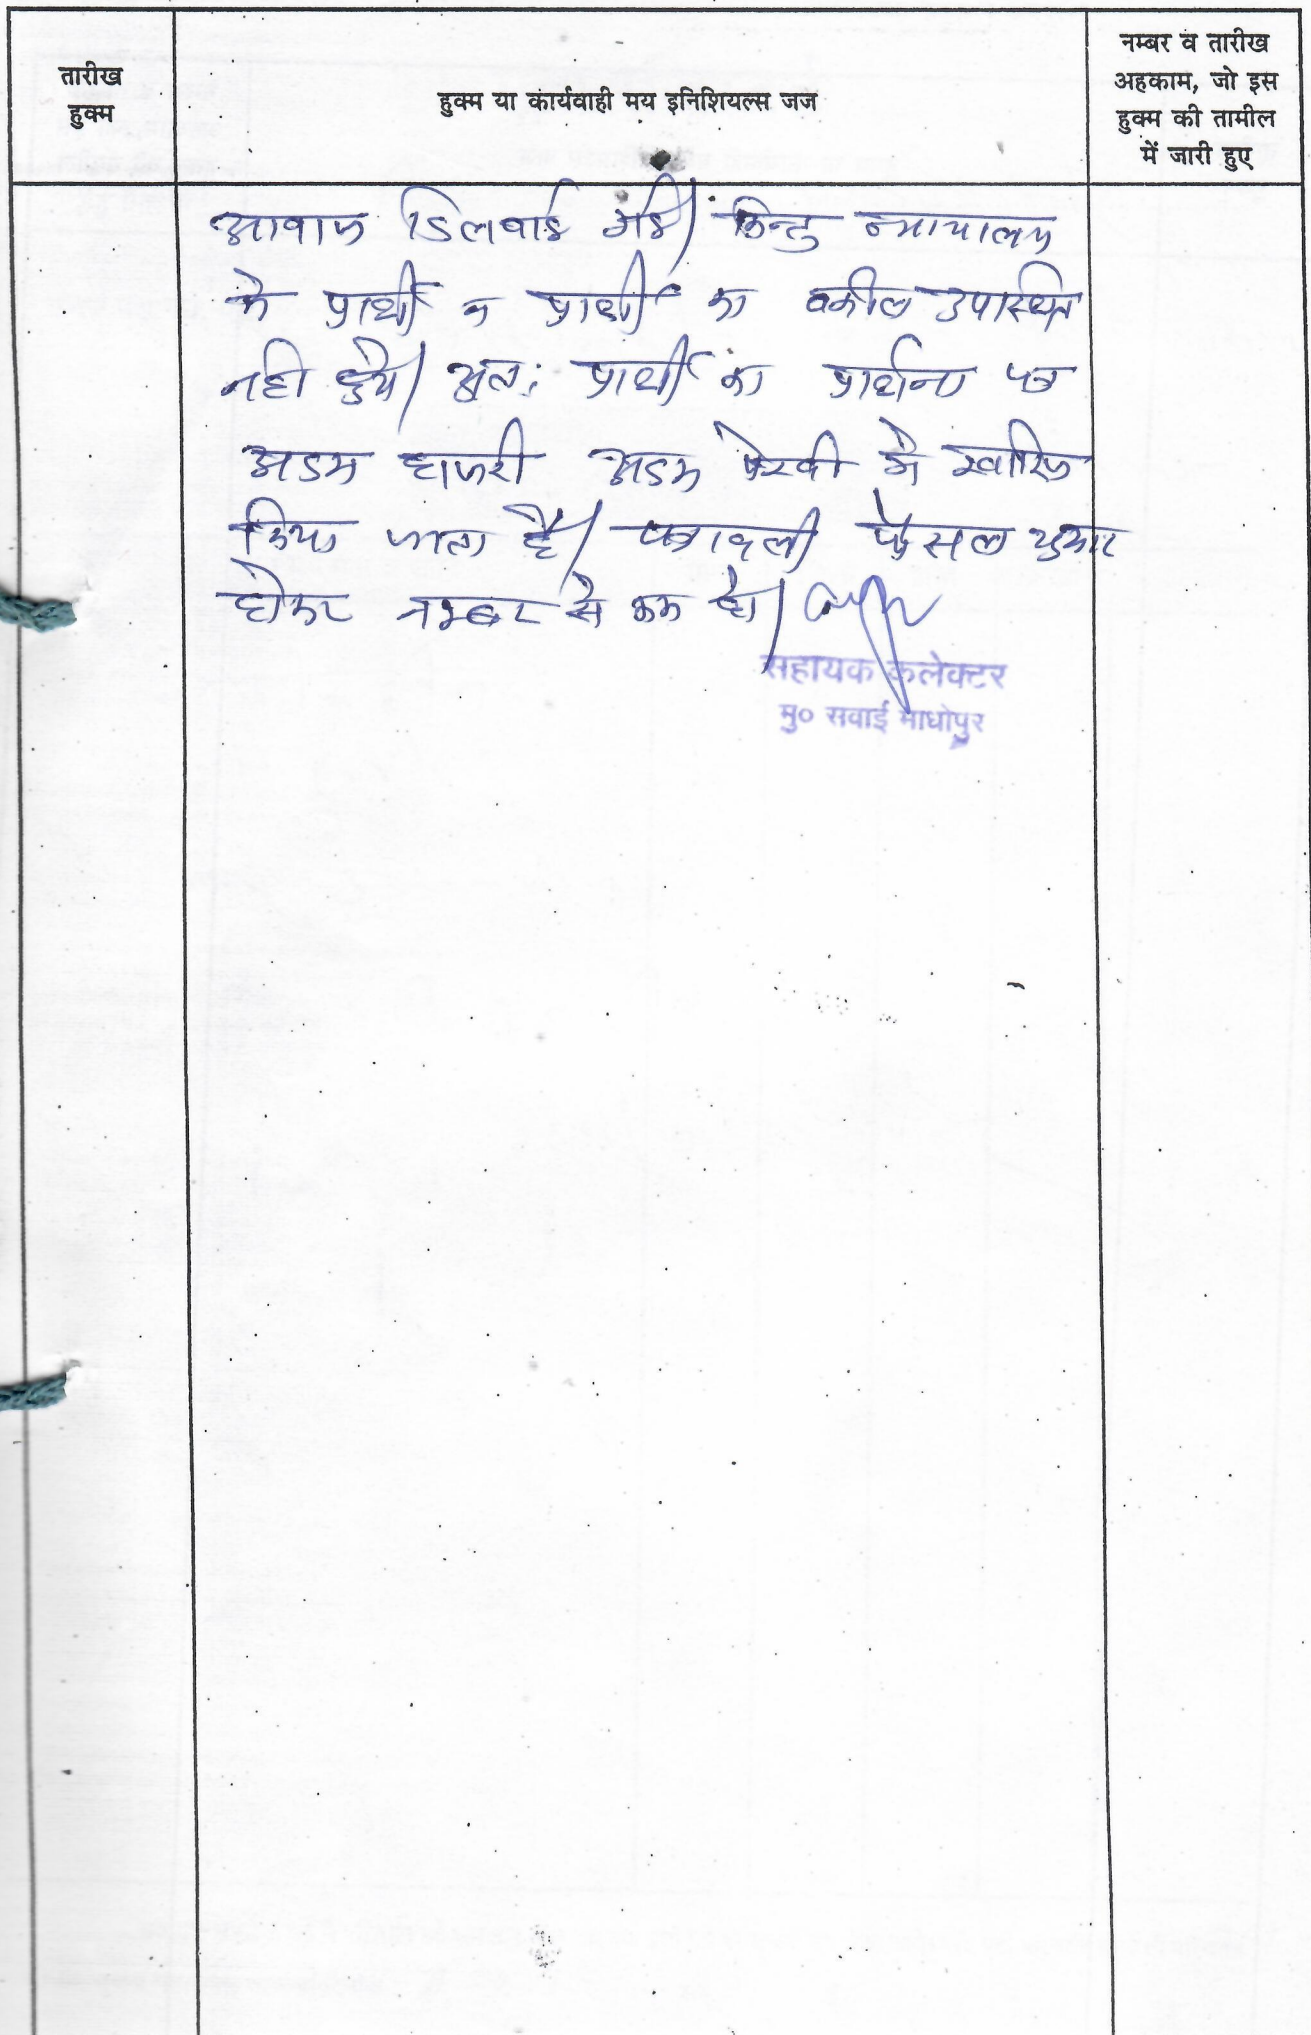 तारीख
हुक्म
हुक्म या कार्यवाही मय इनिशियल्स जज
नम्बर व तारीख
अहकाम, जो इस
हुक्म की तामील
में जारी हुए
आवाज डिलवाई गई। किन्तु न्यायालय
मे प्रार्थी व प्रार्थी का वकील उपस्थित
नही हुये। अतः प्रार्थी का प्रार्थना पत्र
अडम हाजरी अडम पेरवी मे खारिज
किया जाता है। पत्रावली फैसल शुमार
होकर नम्बर से कम हो।
सहायक कलेक्टर
मु० सवाई माधोपुर